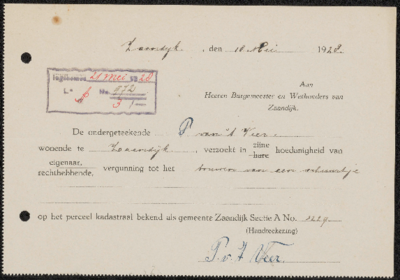 Zaandijk, den 10 Mei 1928.
Ingekomen 21 Mei 1928
L A No 872
Aan
Heeren Burgemeester en Wethouders van
Zaandijk.
De ondergeteekende P van 't Veer
wonende te Zaandijk, verzoekt in zijne hoedanigheid van
hare
eigenaar,
rechthebbende, vergunning tot het bouwen van een schuurtje
op het perceel kadastraal bekend als gemeente Zaandijk Sectie A No. 1229
(Handteekening)
P. v. 't Veer.